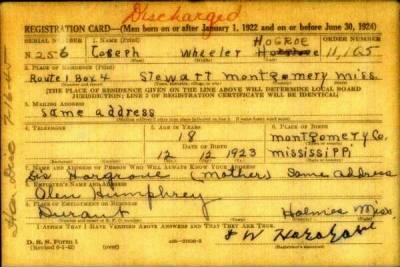 Discharged
REGISTRATION CARD—(Men born on or after January 1, 1922 and on or before June 30, 1924)
SERIAL NUMBER 1. NAME (Print) ORDER NUMBER
HOGROE
N 256 Joseph Wheeler 11,165
(First) (Middle) (Last)
2. PLACE OF RESIDENCE (Print)
Route 1 Box 4 Stewart Montgomery Miss.
(THE PLACE OF RESIDENCE GIVEN ON THE LINE ABOVE WILL DETERMINE LOCAL BOARD
JURISDICTION; LINE 2 OF REGISTRATION CERTIFICATE WILL BE IDENTICAL)
3. MAILING ADDRESS
Same address
4. TELEPHONE 5. AGE IN YEARS 6. PLACE OF BIRTH
18 Montgomery Co.
DATE OF BIRTH
12 12 1923 Mississippi
7. NAME AND ADDRESS OF PERSON WHO WILL ALWAYS KNOW YOUR ADDRESS
Hargrove (Mother) Same address
8. EMPLOYER'S NAME AND ADDRESS
Olen Humphrey
9. PLACE OF EMPLOYMENT OR BUSINESS
Durant Holmes Miss.
I AFFIRM THAT I HAVE VERIFIED ABOVE ANSWERS AND THAT THEY ARE TRUE.
D. S. S. Form 1
J W